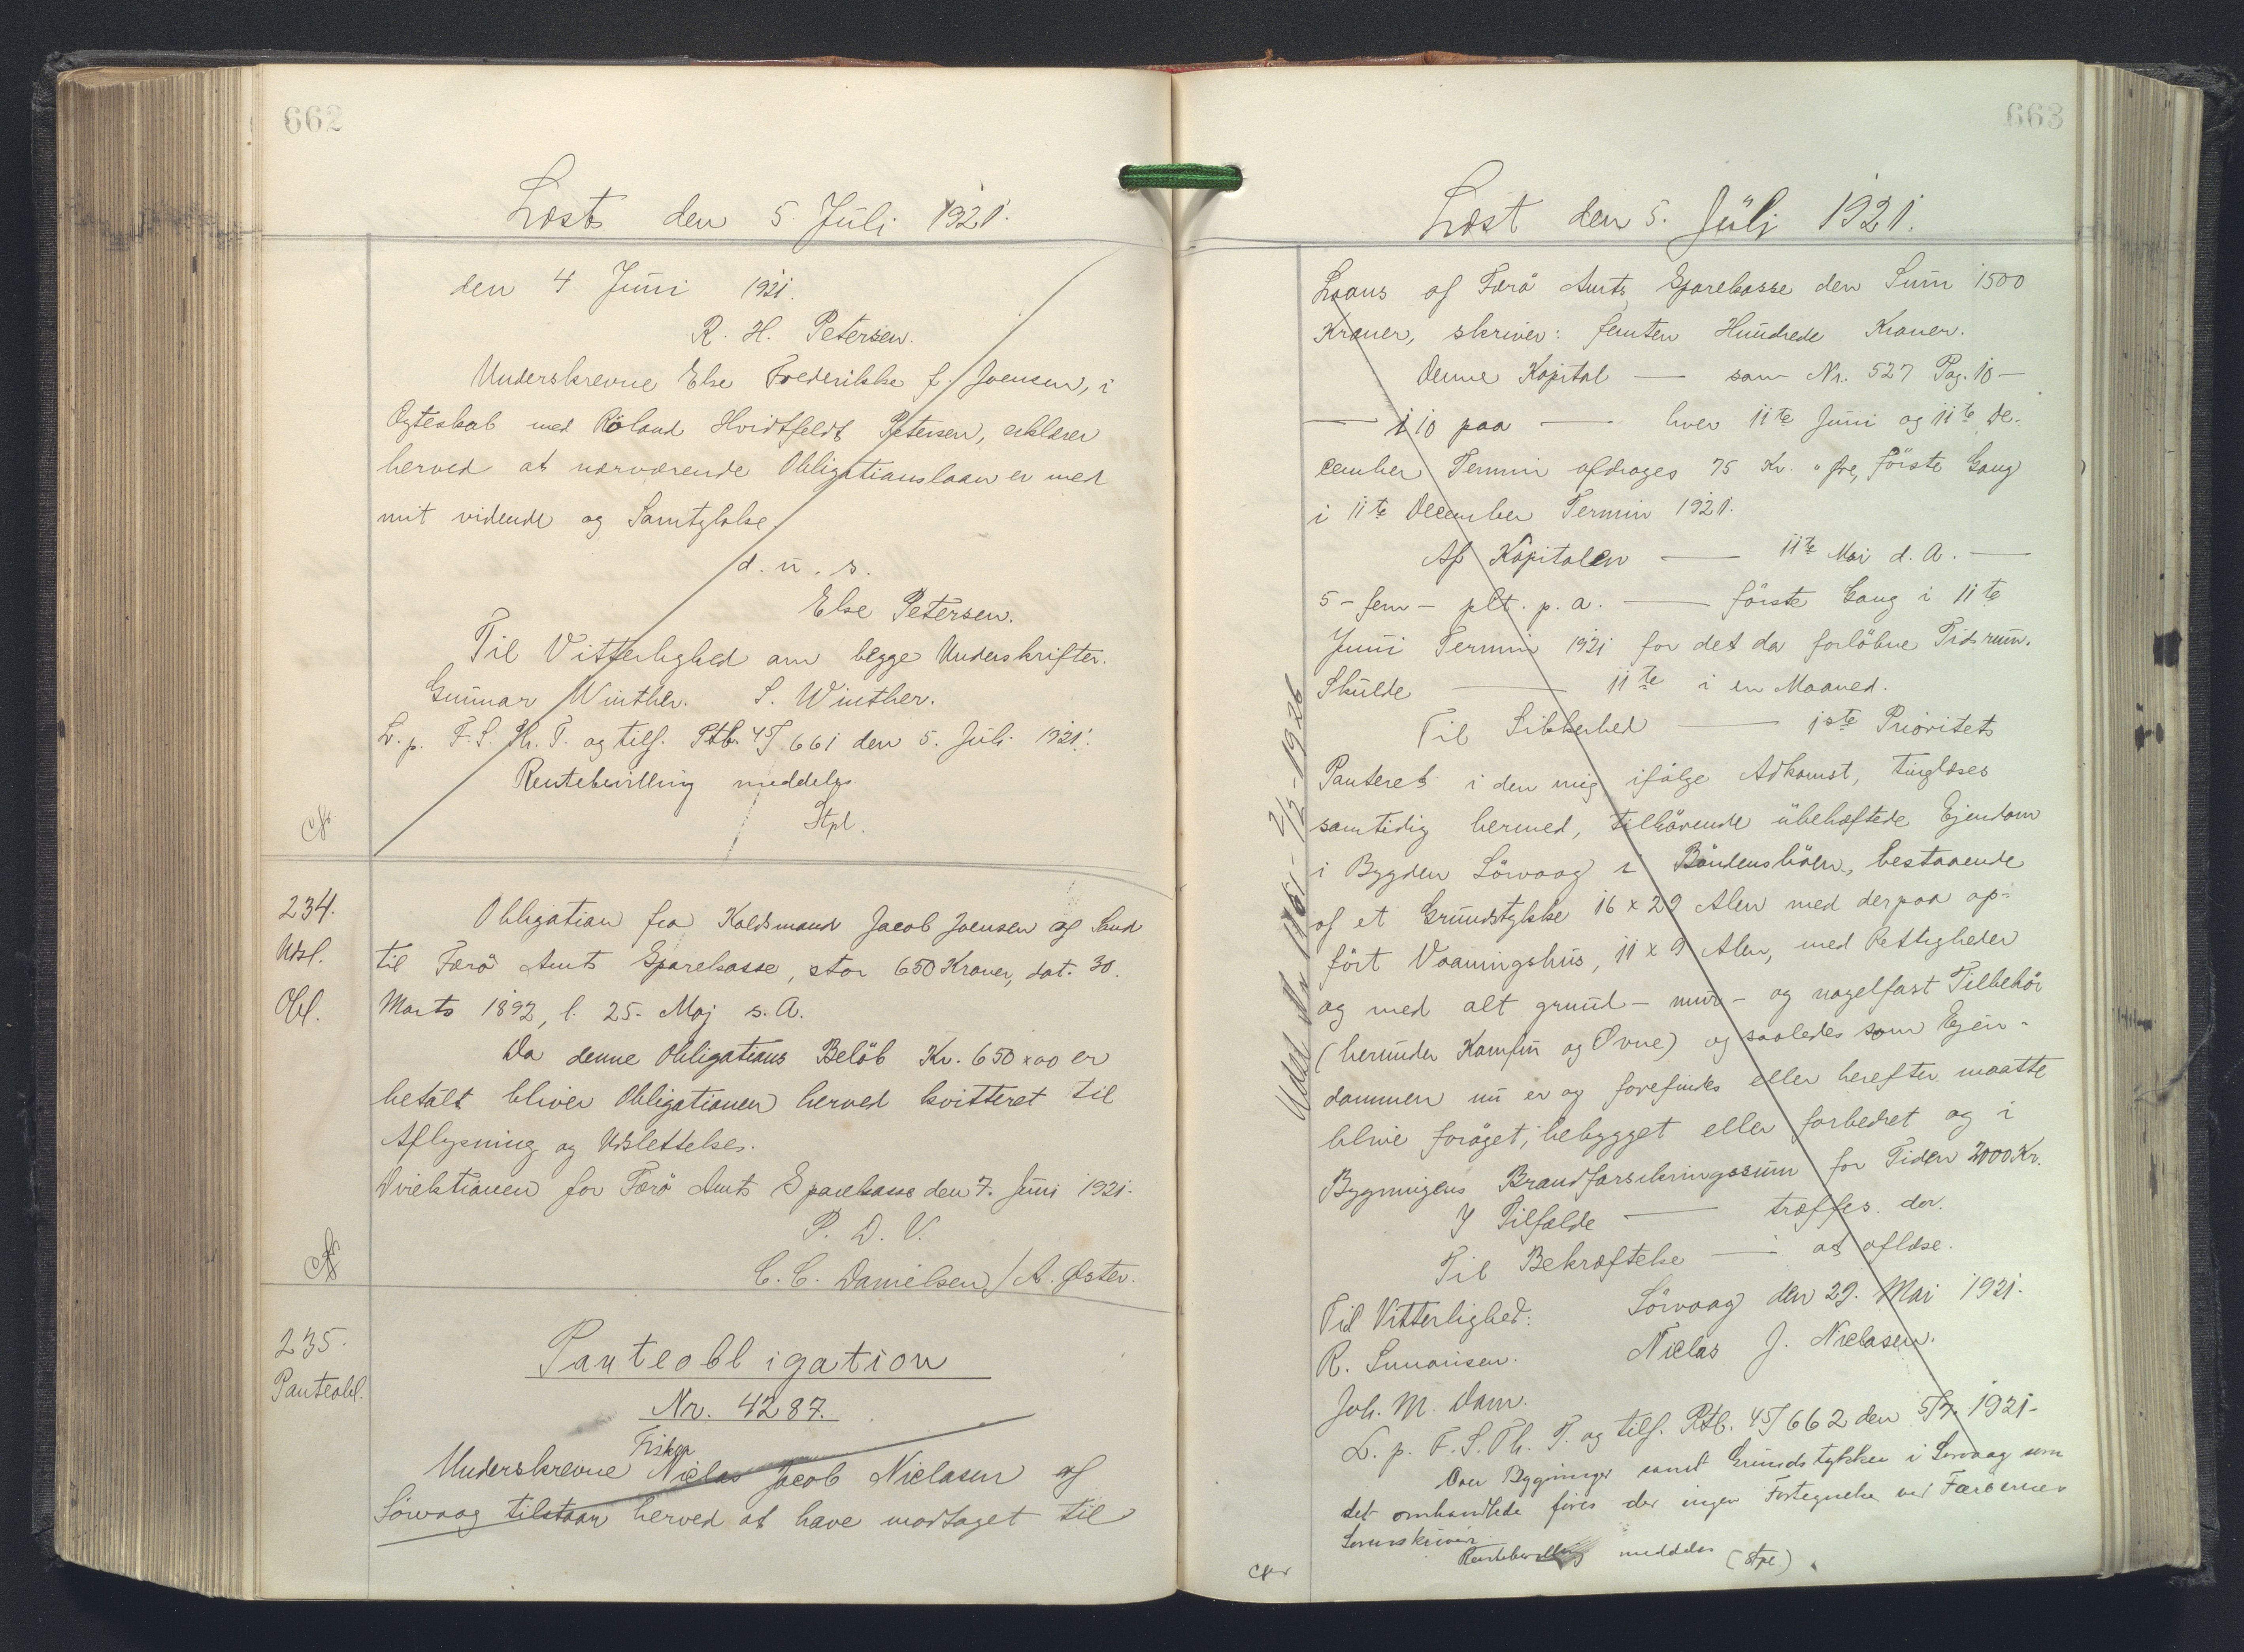 662
Læst den 5 Juli 1921.
den 4 Juni 1921.
R. H. Petersen.
Underskrevne Else Frederikke f. Joensen, i
Ægteskab med Roland Hvidtfeldt Petersen, erklærer
herved at nærværende Obligationslaan er med
mit vidende og Samtykke.
d. u. s.
Else Petersen.
Til Vitterlighed om begge Underskrifter.
Gunnar Winther. S. Winther.
L. p. F. S. Th. T. og tilf. Ptb. 45/661 den 5. Juli 1921.
Rentebevilling meddeles
Stpl.
234.
Udsl.
Obl.
Obligation fra Koldsmand Jacob Joensen af Sand
til Færø Amts Sparekasse, stor 650 Kroner, dat. 30.
Marts 1892, l. 25. Maj s. A.
Da denne Obligations Beløb Kr. 650 x 00 er
betalt bliver Obligationen herved kvitteret til
Aflysning og Udslettelse.
Direktionen for Færø Amts Sparekasse den 7. Juni 1921.
P. D. V.
C. C. Danielsen / A. Øster.
235.
Panteobl.
Panteobligation
Nr. 4287.
Fisker
Underskrevne Niclas Jacob Niclasen af
Sörvaag tilstaar herved at have modtaget til
663
Læst den 5. Juli 1921.
Laans af Færö Amts Sparekasse den Sum 1500
Kroner, skriver: femten Hundrede Kroner.
Denne Kapital — som Nr. 527 Pag. 10 —
— i 10 paa — hver 11te Juni og 11te De-
cember Termin afdrages 75 Kr. " Øre, förste Gang
i 11te December Termin 1921.
Af Kapitalen — 11te Mai d. A. —
5 - fem - pCt. p. a. — förste Gang i 11te
Juni Termin 1921 for det da forløbne Tidsrum.
Skulde — 11te i en Maaned.
Til Sikkerhed — 1ste Prioritets
Panteret i den mig ifølge Adkomst, tinglæses
samtidig hermed, tilhørende ubehæftede Ejendom
i Bygden Sörvaag i Böndensböen, bestaaende
af et Grundstykke 16 x 29 Alen med derpaa op-
fört Vaaningshus, 11 x 9 Alen, med Rettigheder
og med alt grund- mur- og nagelfast Tilbehör
(herunder Komfur og Ovne) og saaledes som Ejen-
dommen nu er og forefindes eller herefter maatte
blive forøget, bebygget eller forbedret og i
Bygningens Brandforsikringssum for Tiden 2000 Kr.
I Tilfælde — træffes. der.
Til Bekræftelse — at aflæse.
Sörvaag den 29. Mai 1921.
Til Vitterlighed:
Niclas J. Niclasen.
R. Simonsen.
Joh. M. Dam.
L. p. F. S. Th. T. og tilf. Ptb. 45/662 den 5/7. 1921.
Over Bygninger samt Grundstykker i Sörvaag som
det omhandlede föres der ingen Fortegnelse ved Færøernes
Sorenskriveri.
Rentebevilling meddeles (Stpl.)
Udsl. 2/5-1926